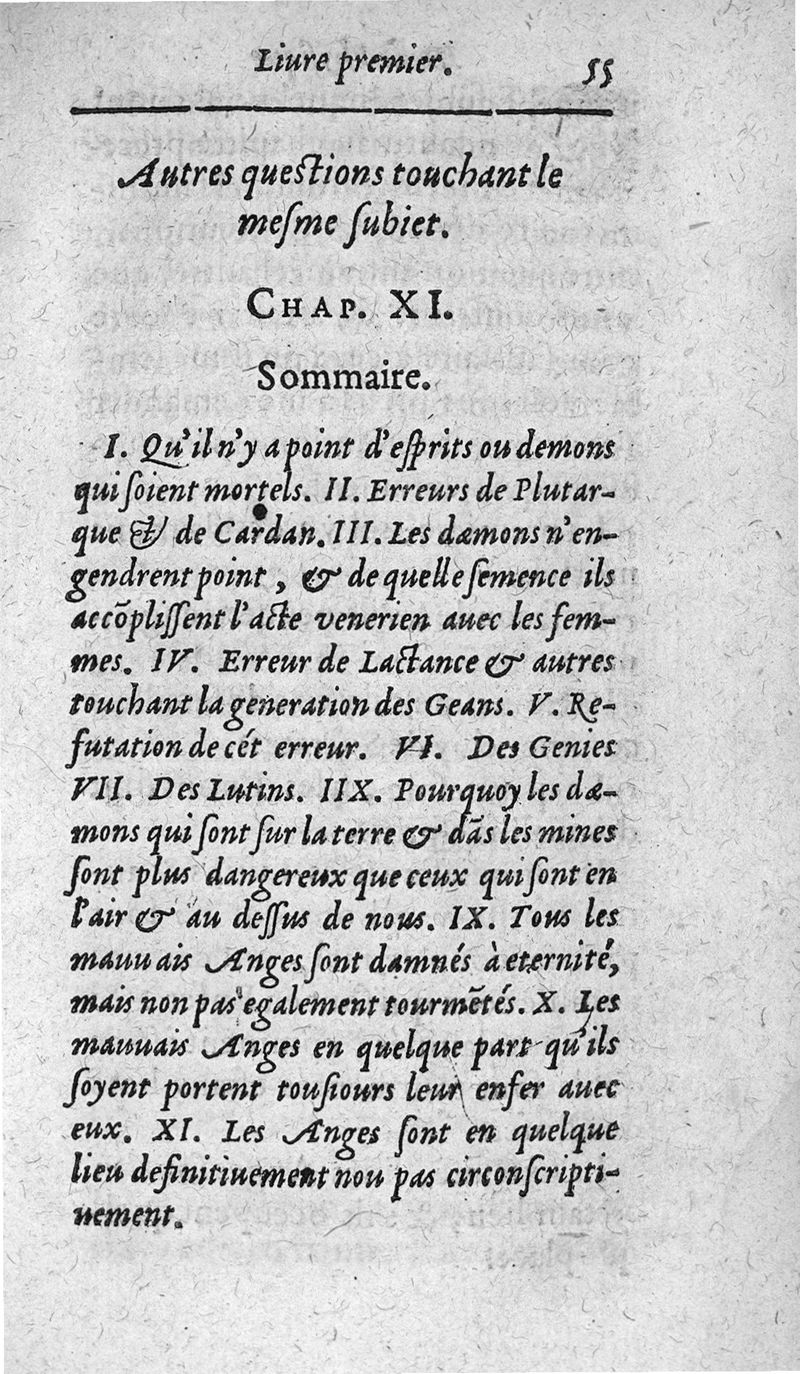 Liure premier. 55
Autres questions touchant le
meſme ſubiet.
CHAP. XI.
Sommaire.
I. Qu'il n'y a point d'eſprits ou demons
qui ſoient mortels. II. Erreurs de Plutar-
que & de Cardan. III. Les dæmons n'en-
gendrent point, & de quelle ſemence ils
accõpliſſent l'acte venerien auec les fem-
mes. IV. Erreur de Lactance & autres
touchant la generation des Geans. V. Re-
futation de cét erreur. VI. Des Genies
VII. Des Lutins. IIX. Pourquoy les dæ-
mons qui ſont ſur la terre & dãs les mines
ſont plus dangereux que ceux qui ſont en
l'air & au deſſus de nous. IX. Tous les
mauuais Anges ſont damnés à eternité,
mais non pas egalement tourmẽtés. X. Les
mauuais Anges en quelque part qu'ils
ſoyent portent touſiours leur enfer auec
eux. XI. Les Anges ſont en quelque
lieu definitiuement nou pas circonſcripti-
uement.